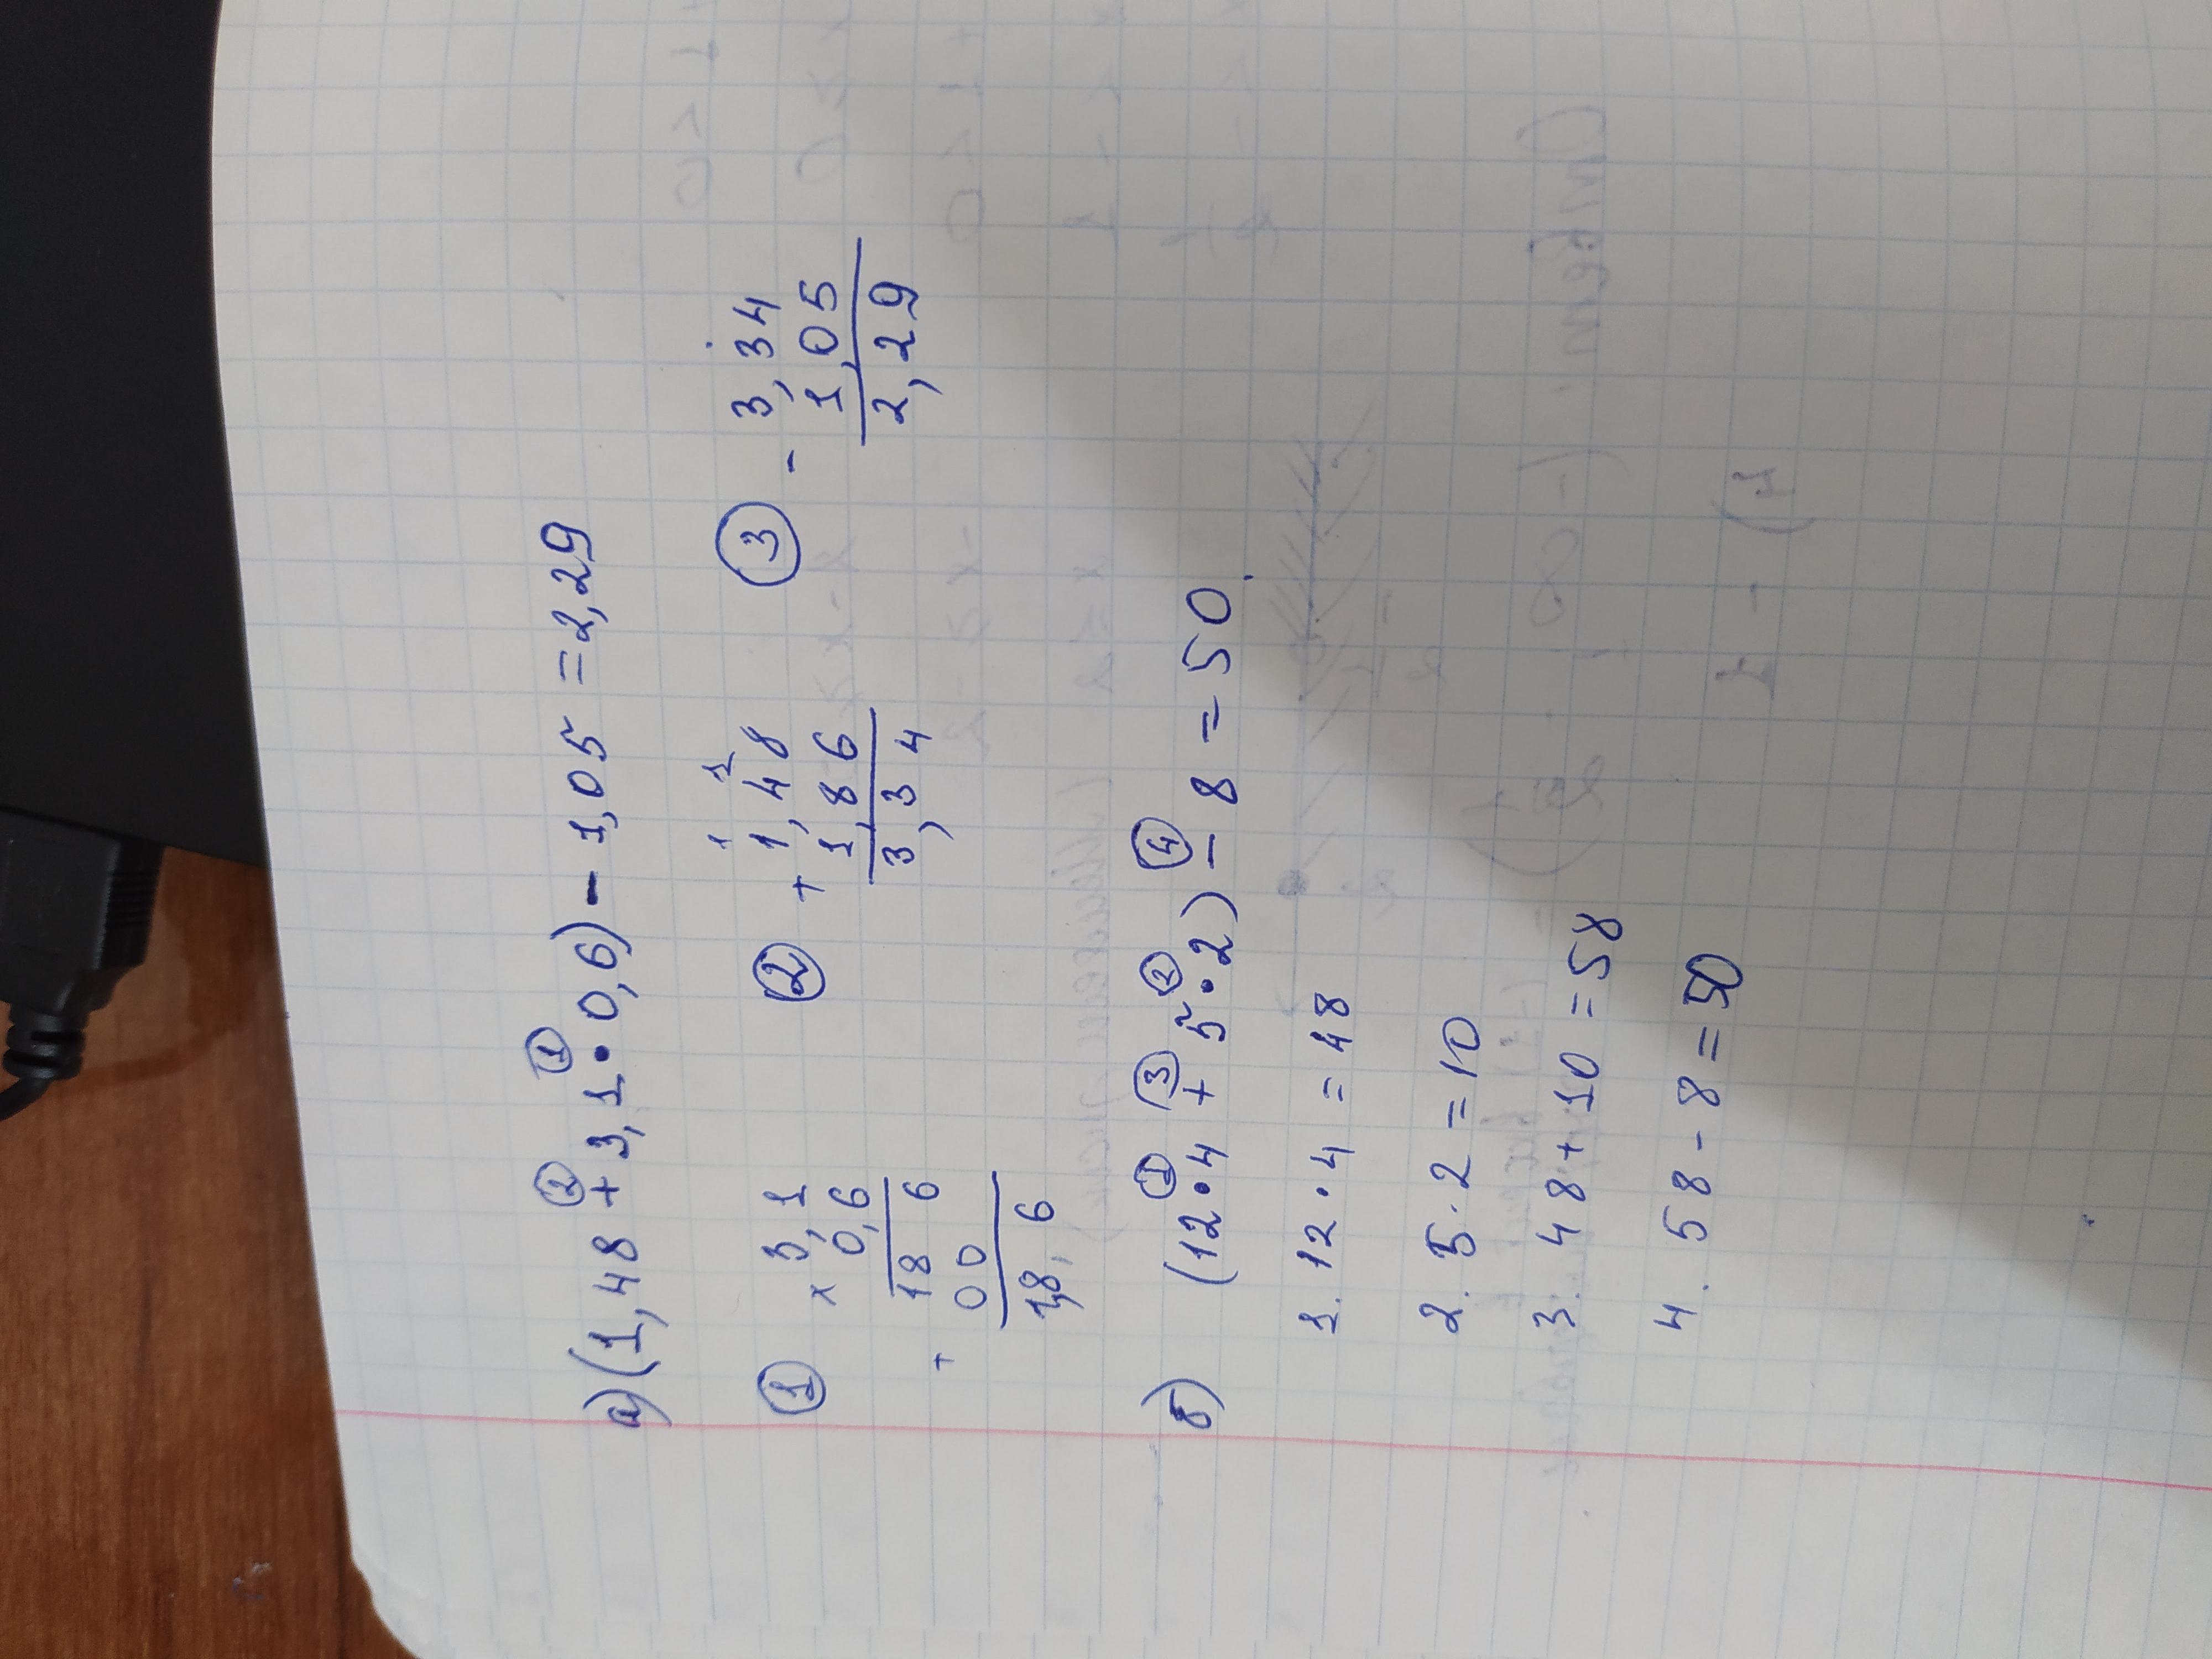 а) (1,48 + 3,1 • 0,6) - 1,05 = 2,29
② ①
① × 3,1
0,6
18 6
+ 00
1,8 6
② 1 1
+ 1,48
1,86
3,34
③ - 3,34
1,05
2,29
б) (12 • 4 + 5 • 2) - 8 = 50.
① ③ ② ④
1. 12 • 4 = 48
2. 5 • 2 = 10
3. 48 + 10 = 58
4. 58 - 8 = 50